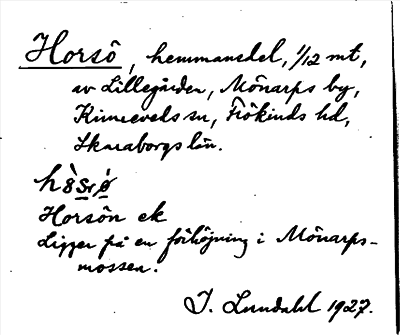 Horsö, hemmansdel, 1/12 mt,
av Lillegården, Mönarps by,
Kinneveds sn, Frökinds hd,
Skaraborgs län.
Horsön ek
Ligger på en förhöjning i Mönarps-
mossen.
I. Lundahl 1927.